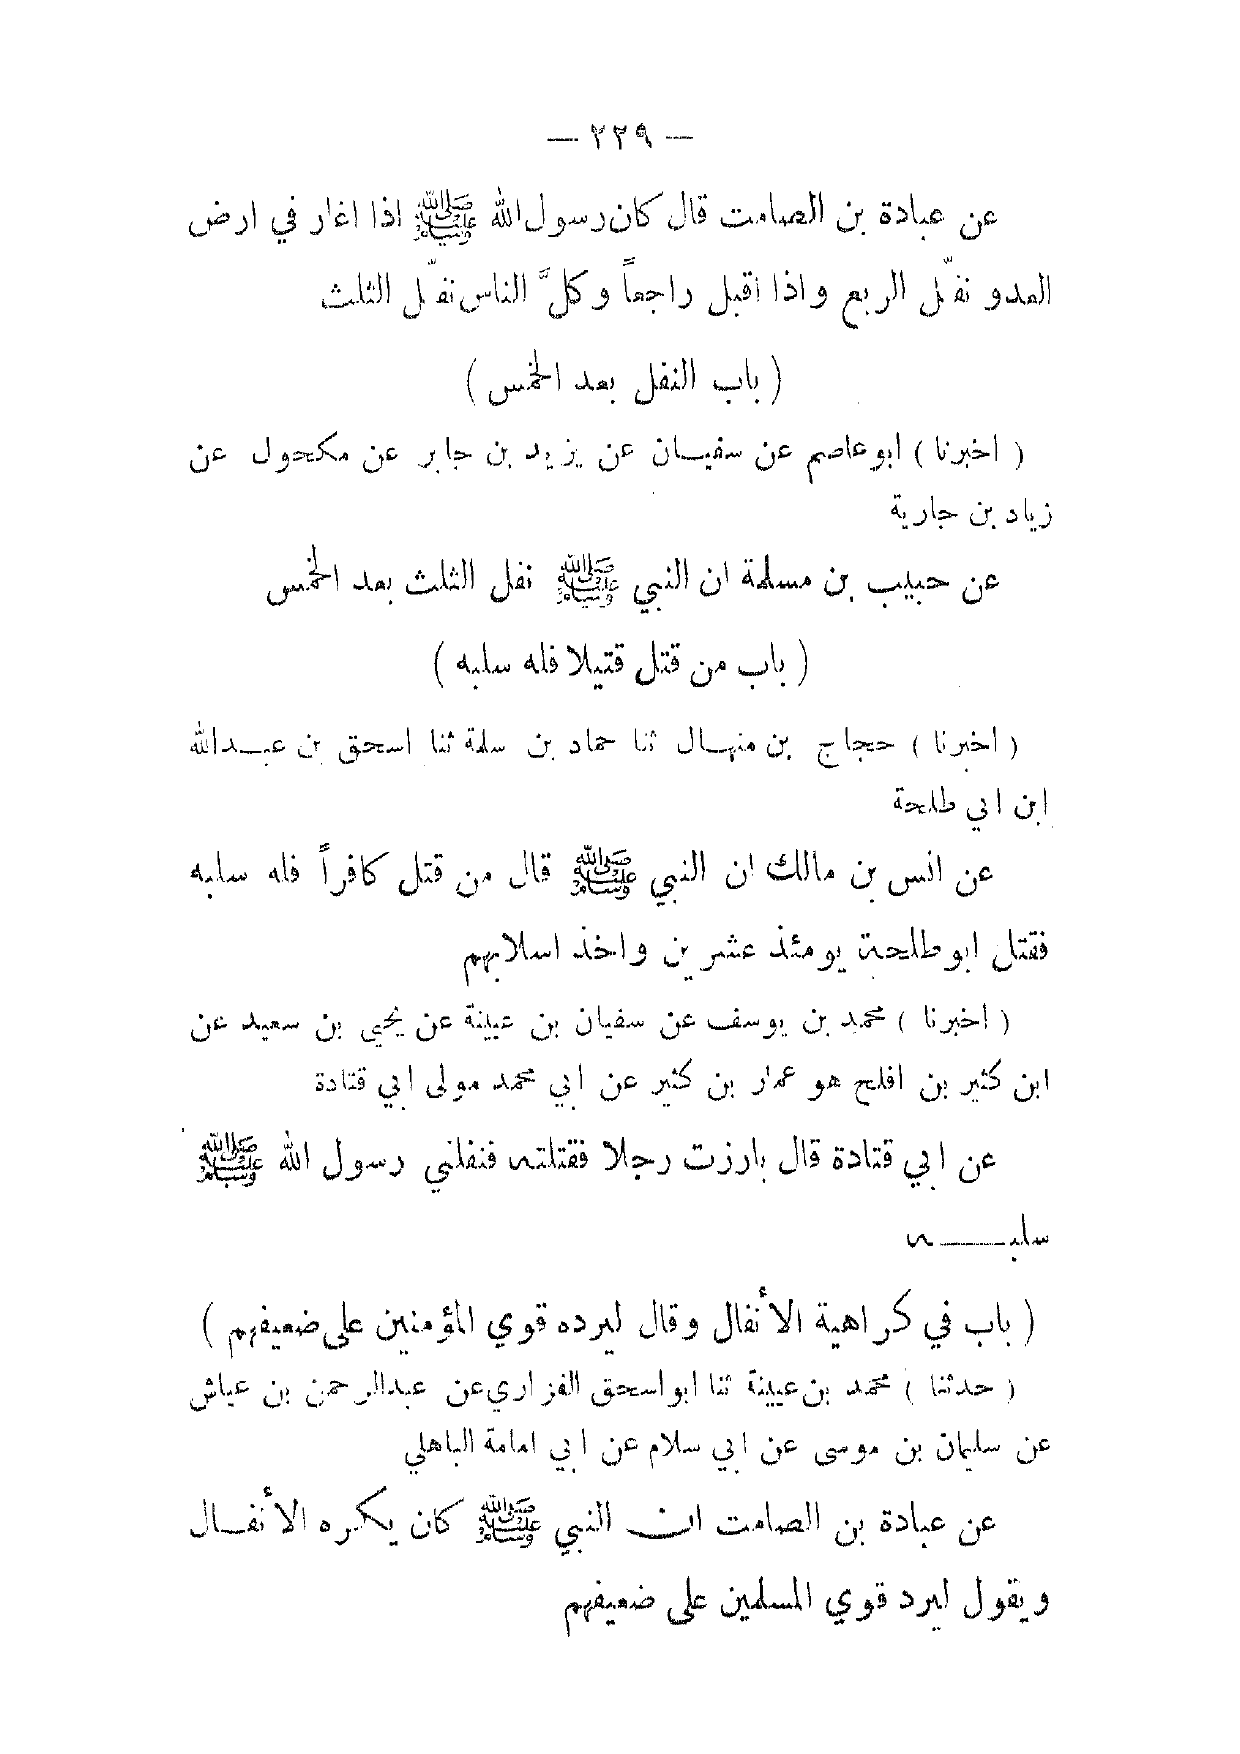 — ٢٢٩ —
عن عبادة بن الصامت قال كان رسول الله ﷺ اذا اغار في ارض
العدو نفّل الربع واذا اقبل راجعاً وكلَّ الناس نفّل الثلث
( باب النفل بعد الخمس )
( اخبرنا ) ابو عاصم عن سفيان عن يزيد بن جابر عن مكحول عن
زياد بن جارية
عن حبيب بن مسلمة ان النبي ﷺ نفل الثلث بعد الخمس
( باب من قتل قتيلا فله سلبه )
( اخبرنا ) حجاج بن منهال ثنا حماد بن سلمة ثنا اسحق بن عبدالله
ابن ابي طلحة
عن انس بن مالك ان النبي ﷺ قال من قتل كافراً فله سلبه
فقتل ابو طلحة يومئذ عشرين واخذ اسلابهم
( اخبرنا ) محمد بن يوسف عن سفيان بن عيينة عن يحيى بن سعيد عن
ابن كثير بن افلح هو عمار بن كثير عن ابي محمد مولى ابي قتادة
عن ابي قتادة قال بارزت رجلا فقتلته فنفلني رسول الله ﷺ
سلبه
( باب في كراهية الأنفال وقال ليرده قوي المؤمنين على ضعيفهم )
( حدثنا ) محمد بن عيينة ثنا ابو اسحق الفزاري عن عبدالرحمن بن عياش
عن سليمان بن موسى عن ابي سلام عن ابي امامة الباهلي
عن عبادة بن الصامت ان النبي ﷺ كان يكره الأنفال
ويقول ليرد قوي المسلمين على ضعيفهم